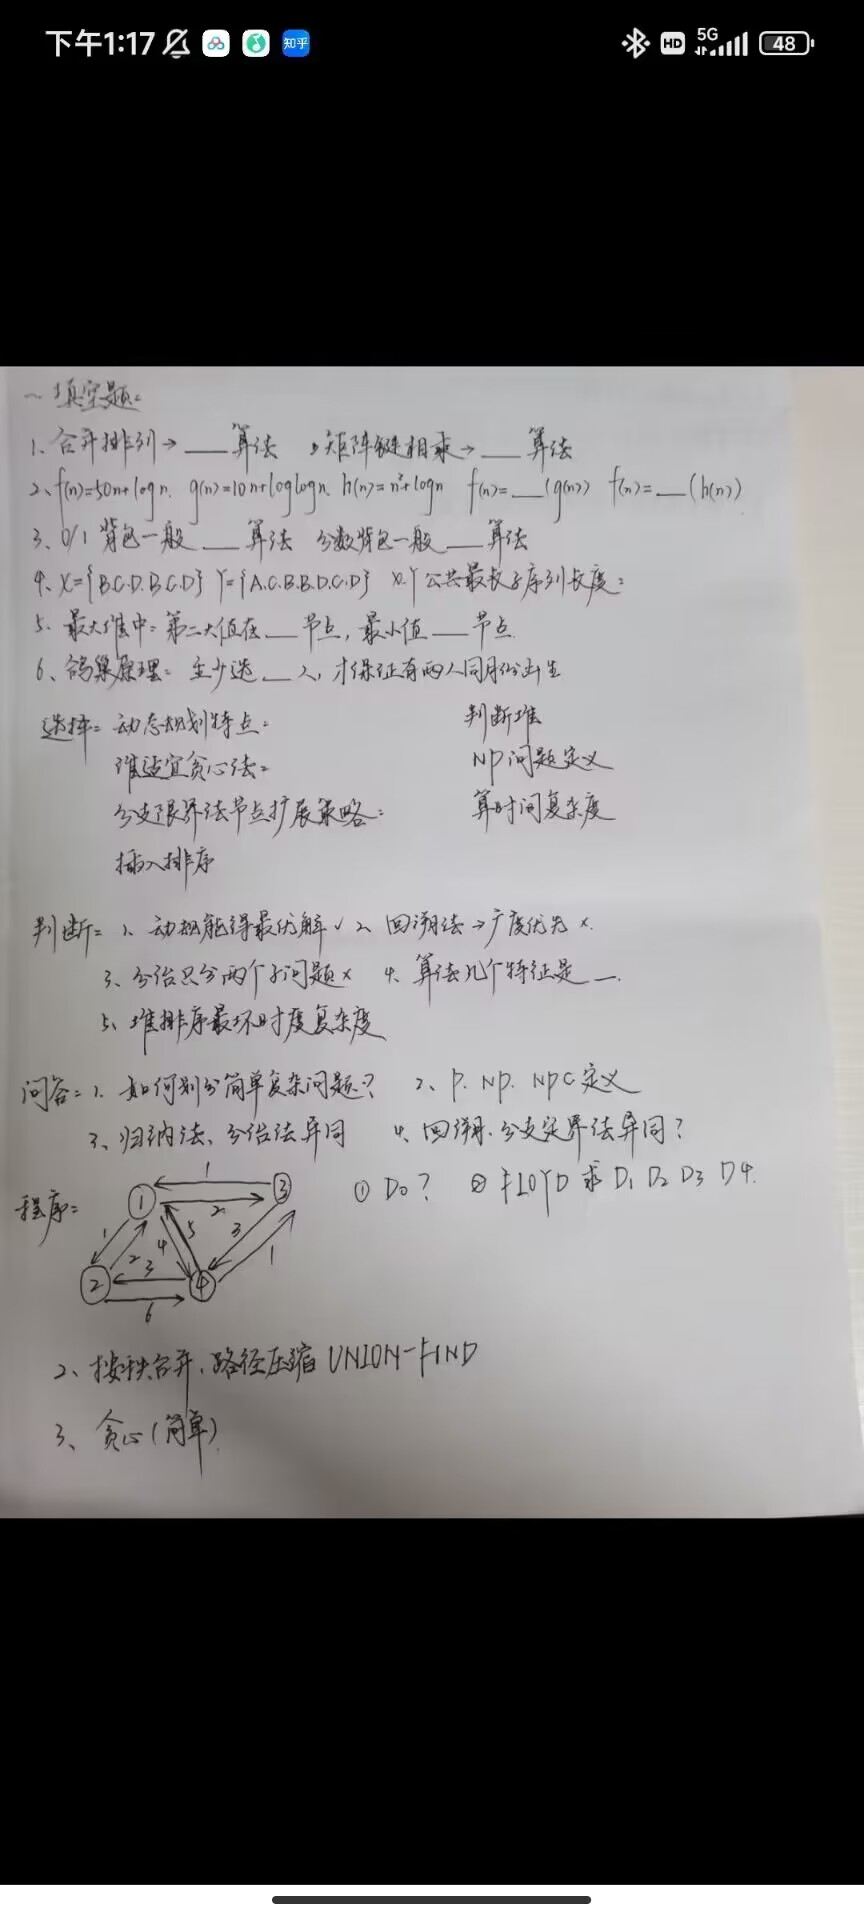 下午1:17 知乎 HD 5G 48
一填空题:
1、合并排列→ ___ 算法 , 矩阵链相乘→ ___ 算法
2、f(n)=50n+logn. g(n)=10n+loglogn. h(n)=n²+logn f(n)=__(g(n)) f(n)=__(h(n))
3、0/1 背包一般 ___ 算法 分数背包一般 ___ 算法
4、X={B.C.D.B.C.D} Y={A.C.B.B.D.C.D} X.Y公共最长子序列长度:
5、最大堆中: 第二大值在 __ 节点, 最小值 __ 节点.
6、鸽巢原理: 至少选 __ 人, 才保证有两人同月份出生
选择: 动态规划特点: 判断堆
谁适宜贪心法: NP问题定义
分支限界法节点扩展策略: 算时间复杂度
插入排序
判断: 1、动规能得最优解 ✓ 2、回溯法→广度优先 ×.
3、分治只分两个子问题 × 4、算法几个特征是 __.
5、堆排序最坏时度复杂度
问答: 1、如何划分简单复杂问题? 2、P. NP. NPC定义
3、归纳法、分治法异同 4、回溯、分支定界法异同?
程序: 1 3 2 4 1 2 1 2 4 5 3 1 3 6 ① D0? ② FLOYD 求 D1 D2 D3 D4.
2、按秩合并、路径压缩 UNION-FIND
3、贪心(简单)